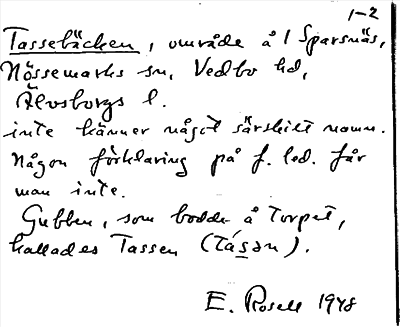 1-2
Tassebäcken, område å 1 Sparsnäs,
Nössemarks sn, Vedbo hd,
Älvsborgs l.
inte känner något särskilt namn.
Någon förklaring på f. led. får
man inte.
Gubben, som bodde å torpet,
kallades Tassen (tásən).
E. Rosell 1948